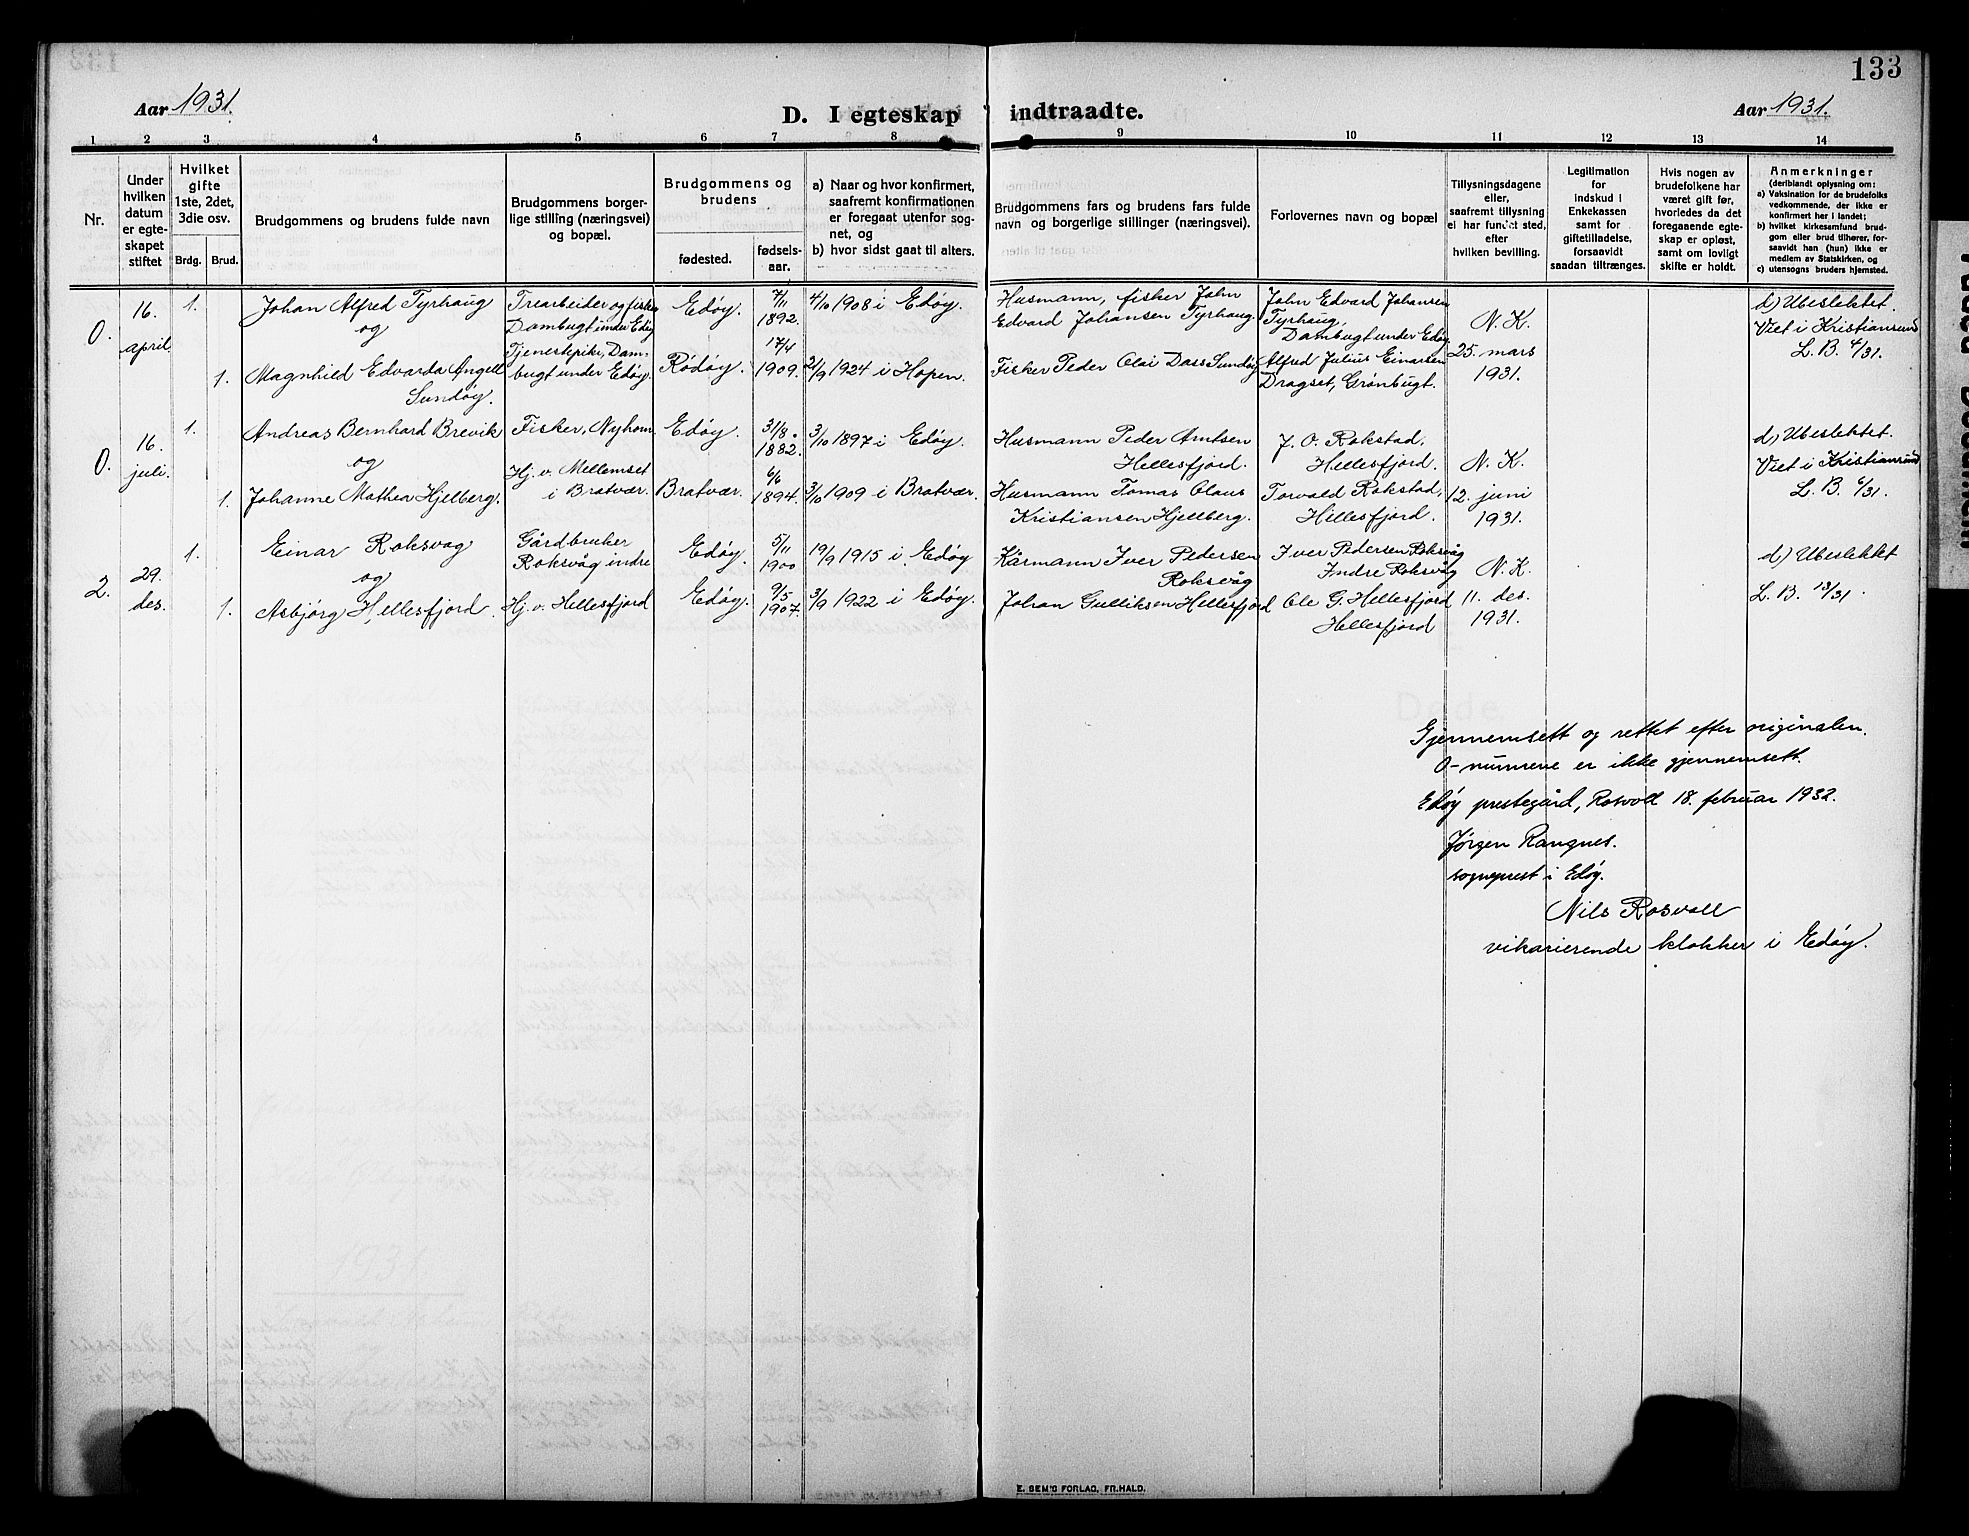 133
Aar 1931.
D. I egteskap indtraadte.
Aar 1931.
1 2 3 4 5 6 7 8 9 10 11 12 13 14
Nr.
Under hvilken datum er egteskapet stiftet
Hvilket gifte 1ste, 2det, 3die osv.
Brdg. Brud.
Brudgommens og brudens fulde navn
Brudgommens borgerlige stilling (næringsvei) og bopæl.
Brudgommens og brudens
fødested.
fødselsaar.
a) Naar og hvor konfirmert, saafremt konfirmationen er foregaat utenfor sognet, og
b) hvor sidst gaat til alters.
Brudgommens fars og brudens fars fulde navn og borgerlige stillinger (næringsvei).
Forlovernes navn og bopæl
Tillysningsdagene eller, saafremt tillysning ei har fundet sted, efter hvilken bevilling.
Legitimation for Indskud i Enkekassen samt for giftetilladelse, forsaavidt saadan tiltrænges.
Hvis nogen av brudefolkene har været gift før, hvorledes da det foregaaende egteskap er opløst, samt om lovligt skifte er holdt.
Anmerkninger
(deriblandt oplysning om:
a) Vaksination for de brudefolks vedkommende, der ikke er konfirmert her i landet;
b) hvilket kirkesamfund brudgom eller brud tilhører, forsaavidt han (hun) ikke er medlem av Statskirken, og
c) utensogns bruders hjemsted.
0.
16. april
1.
Johan Alfred Tyrhaug
og
Trearbeider og fisker
Dambugt under Edøy
Edøy.
7/11 1892.
4/10 1908 i Edøy.
Husmann, fisker John
Edvard Johansen Tyrhaug.
John Edvard Johansen
Tyrhaug,
Dambugt under Edøy
N. K.
25. mars
1931.
d) Ubeslektet.
Viet i Kristiansund
L. B. 4/31.
1.
Magnhild Edvarda Angell
Sundøy.
Tjenestepike, Dam-
bugt under Edøy.
Rødøy.
17/4 1909.
21/9 1924 i Hopen.
Fisker Peder Olai Dass Sundøy
Alfred Julius Einarsen
Dragset, Grønbugt.
0.
16. juli.
1.
Andreas Bernhard Brevik
og
Fisker, Nyhom
Edøy.
31/8. 1882.
3/10 1897 i Edøy.
Husmann Peder Arntsen
Hellesfjord.
J. O. Rokstad,
Hellesfjord.
N. K.
12. juni
1931.
d) Ubeslektet.
Viet i Kristiansund
L. B. 6/31.
1.
Johanne Mathea Hjelberg.
Hj. v. Mellemset
i Bratvær.
Bratvær.
6/6 1894.
3/10 1909 i Bratvær.
Husmann Tomas Olaus
Kristiansen Hjellberg.
Torvald Rokstad,
Hellesfjord.
2.
29. des.
1.
Einar Roksvåg
og
Gårdbruker
Roksvåg indre
Edøy.
5/11 1900
19/9 1915 i Edøy
Kårmann Iver Pedersen
Roksvåg
Iver Pedersen Roksvåg
Indre Roksvåg
N. K.
11. des.
1931.
d) Ubeslektet
L. B. 13/31
1.
Asbjørg Hellesfjord.
Hj. v. Hellesfjord
Edøy.
9/5 1907.
3/9 1922 i Edøy.
Johan Gulliksen Hellesfjord
Ole G. Hellesfjord
Hellesfjord
Gjennemsett og rettet efter originalen.
0-numrene er ikke gjennemsett.
Edøy prestegård, Rosvoll 18. februar 1932.
Jørgen Rangnes.
sogneprest i Edøy.
Nils Rosvoll
vikarierende klokker i Edøy.
E. SEM'S FORLAG, FR.HALD.